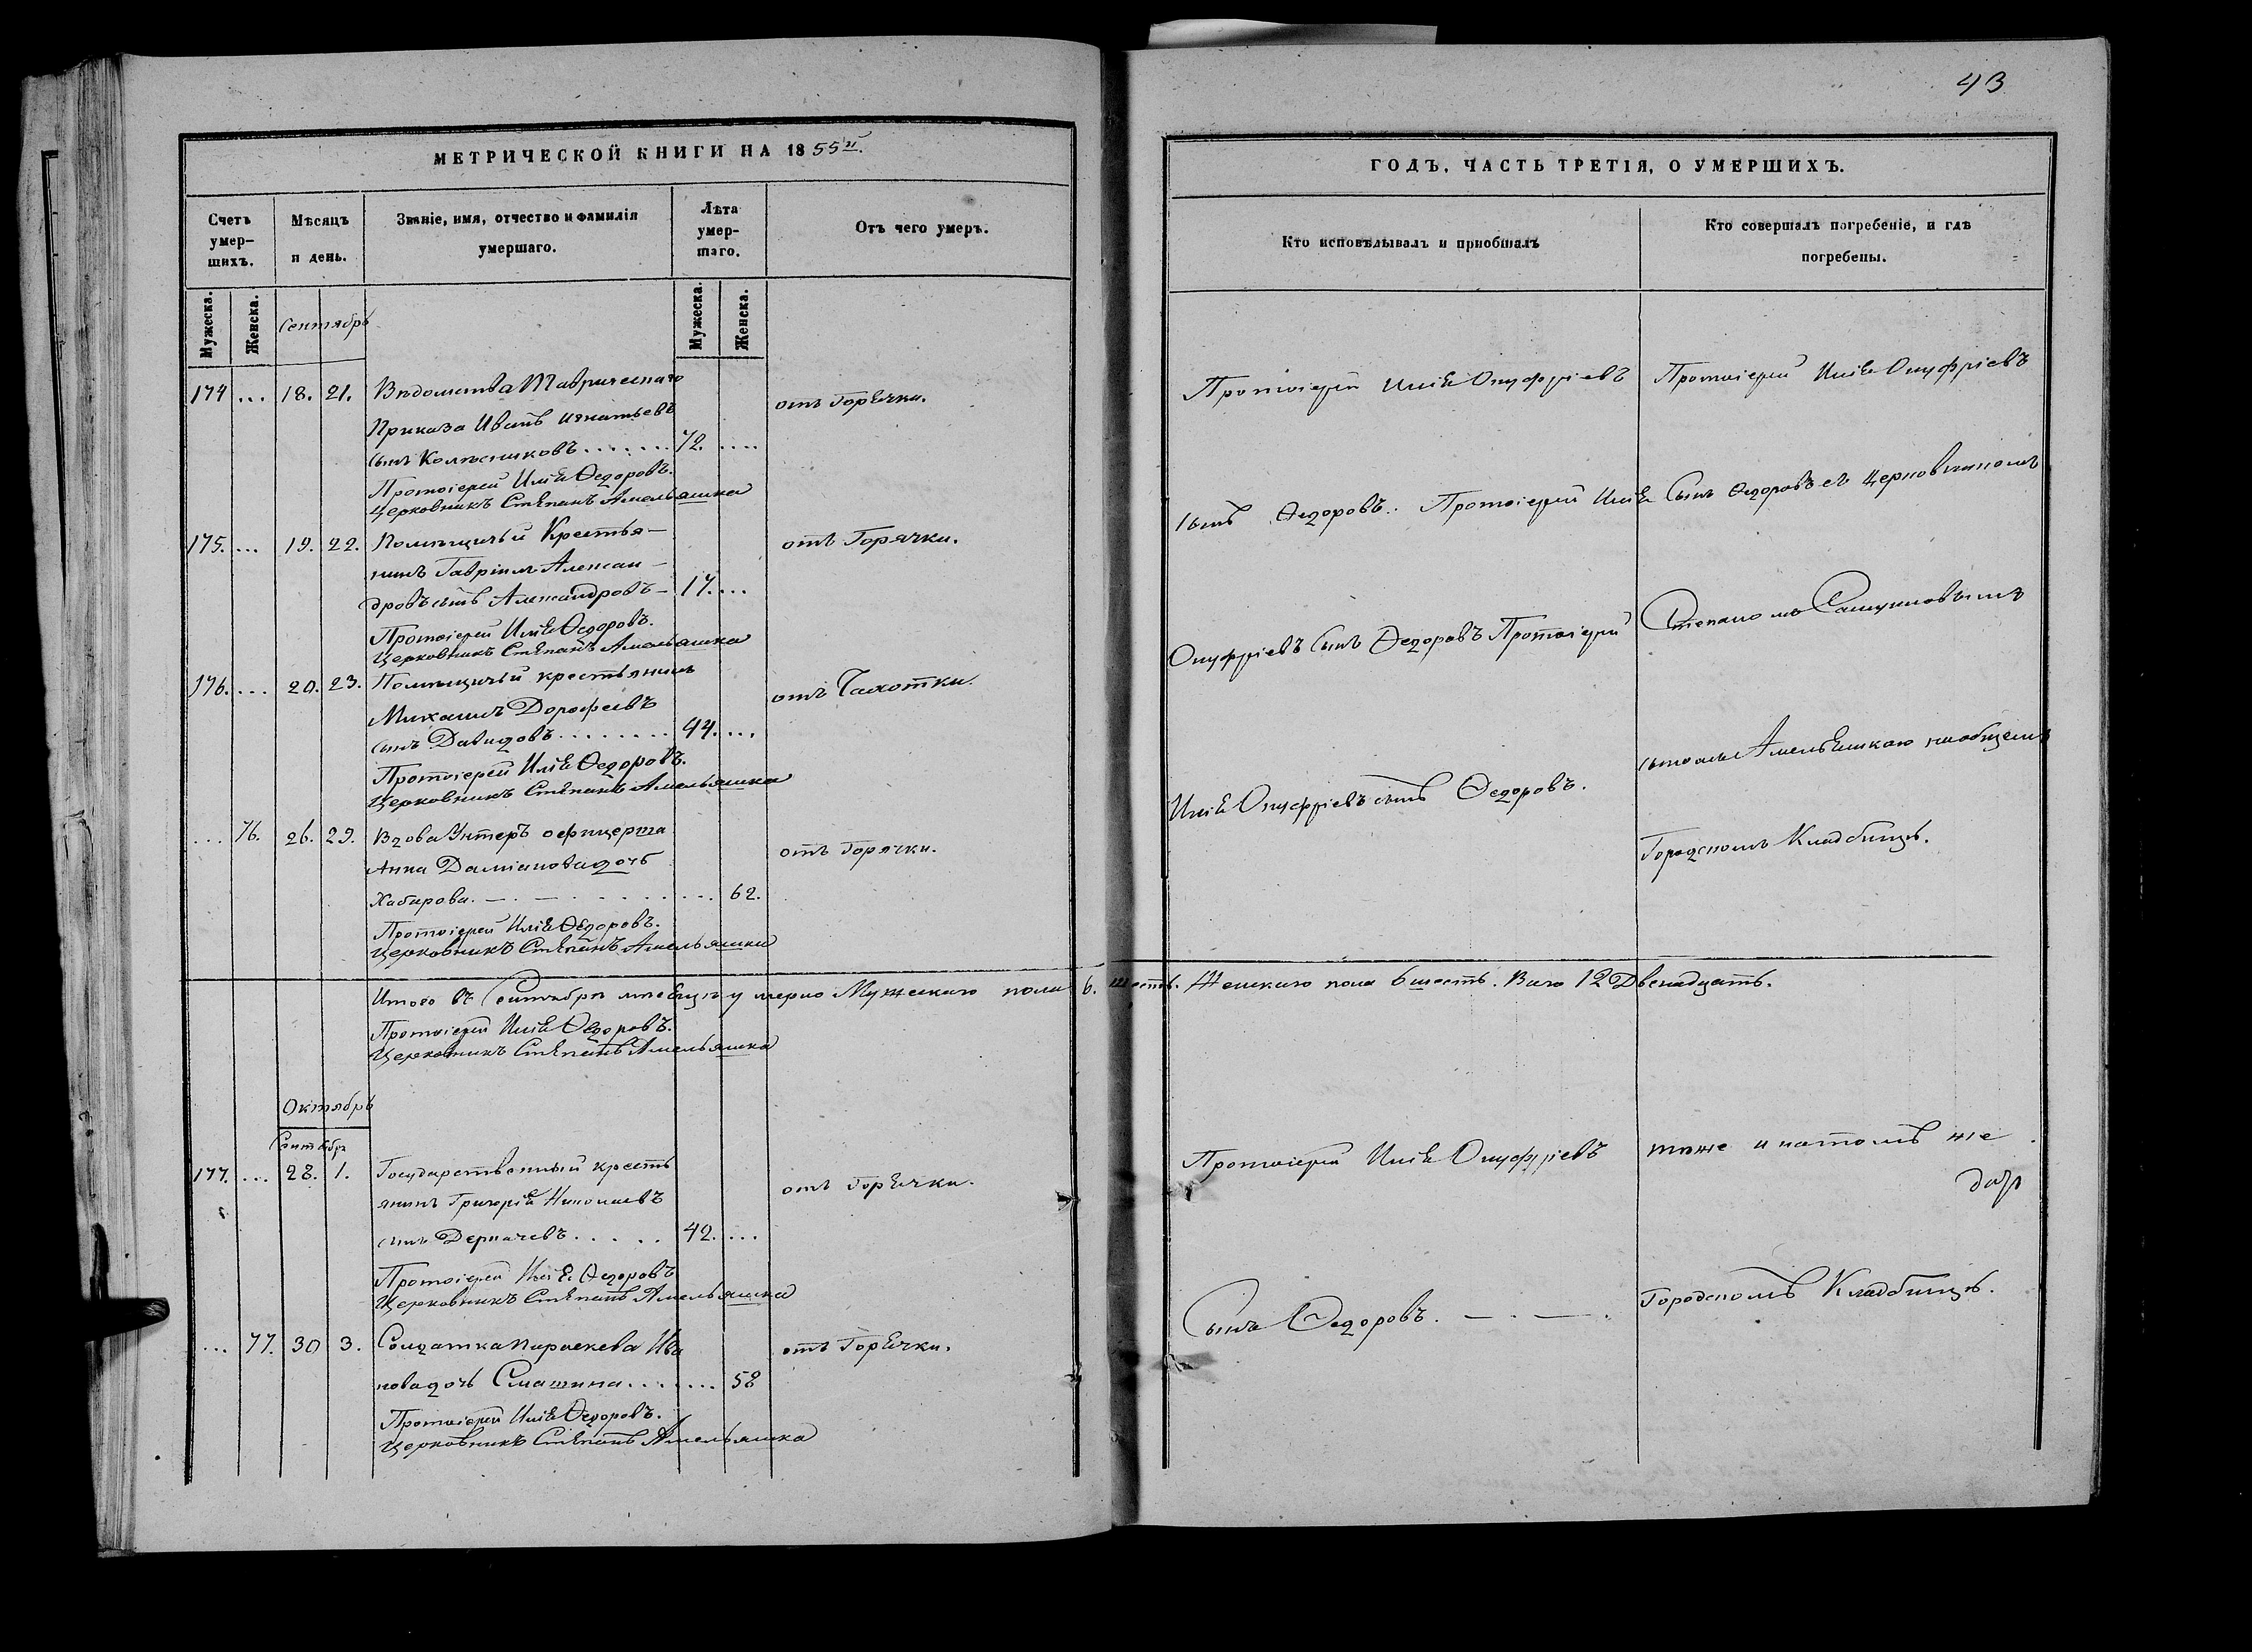 МЕТРИЧЕСКОЙ КНИГИ НА 1855й.
Счетъ умер-шихъ.
Мѣсяцъ и день.
Званіе, имя, отчество и фамилія умершаго.
Лѣта умер-шаго.
Отъ чего умеръ.
Мужеска.
Женска.
Сентябрь
Мужеска.
Женска.
174 ... 18. 21. Вѣдомства Таврическаго
отъ Горячки.
Приказа Иванъ Игнатьевъ
сынъ Колѣсниковъ ....... 72. ....
Протоіерей Илія Ѳедоровъ.
Церковникъ Стѣпанъ Амельяшка
175. ... 19. 22. Помѣщичьй Крестья-
отъ Горячки.
нинъ Гавріилъ Алексан-
дровъ сынъ Александровъ - 17. ...
Протоіерей Илія Ѳедоровъ.
Церковникъ Стѣпанъ Амельяшка
176. ... 20. 23. Помѣщичьй крестьянинъ
отъ Чахотки.
Михаилъ Дорофеевъ
сынъ Давидовъ ........ 44. ...
Протоіерей Илія Ѳедоровъ.
Церковникъ Стѣпанъ Амельяшка
... 76. 26. 29. Вдова Унтеръ офицерша
отъ Горячки.
Анна Даміанова дочь
Хабарова. ... 62.
Протоіерей Илія Ѳедоровъ.
Церковникъ Стѣпанъ Амельяшка
Итого въ Сентябрѣ мѣсяцѣ умерло Мужескаго пола 6. шесть. Женскаго пола 6 шесть. Всего 12 Двенадцать.
Протоіерей Илія Ѳедоровъ.
Церковникъ Стѣпанъ Амельяшка
Октябрь
Сентябрь
177. ... 28. 1. Государственный кресть
отъ Горячки.
янинъ Григорій Николаевъ
сынъ Деркачевъ ..... 42. ...
Протоіерей Илія Ѳедоровъ
Церковникъ Стѣпанъ Амельяшка
... 77. 30 3. Солдатка Параскева Ива
отъ Горячки.
нова дочь Смагина ....... 58
Протоіерей Илія Ѳедоровъ.
Церковникъ Стѣпанъ Амельяшка
43
ГОДЪ, ЧАСТЬ ТРЕТІЯ, О УМЕРШИХЪ.
Кто исповѣдывалъ и пріобщалъ
Кто совершалъ погребеніе, и гдѣ погребены.
Протоіерей Илія Онуфріевъ
сынъ Ѳедоровъ. Протоіерей Илія
Онуфріевъ сынъ Ѳедоровъ Протоіерей
Илія Онуфріевъ сынъ Ѳедоровъ.
Протоіерей Илія Онуфріевъ
Сынъ Ѳедоровъ съ Церковникомъ
Степаномъ Самуиловымъ
сыномъ Амельяшкою на общемъ
Городскомъ Кладбищѣ.
Протоіерей Илія Онуфріевъ
Сынъ Ѳедоровъ. - . - .
тоже и на томъ же
Городскомъ Кладбищѣ.